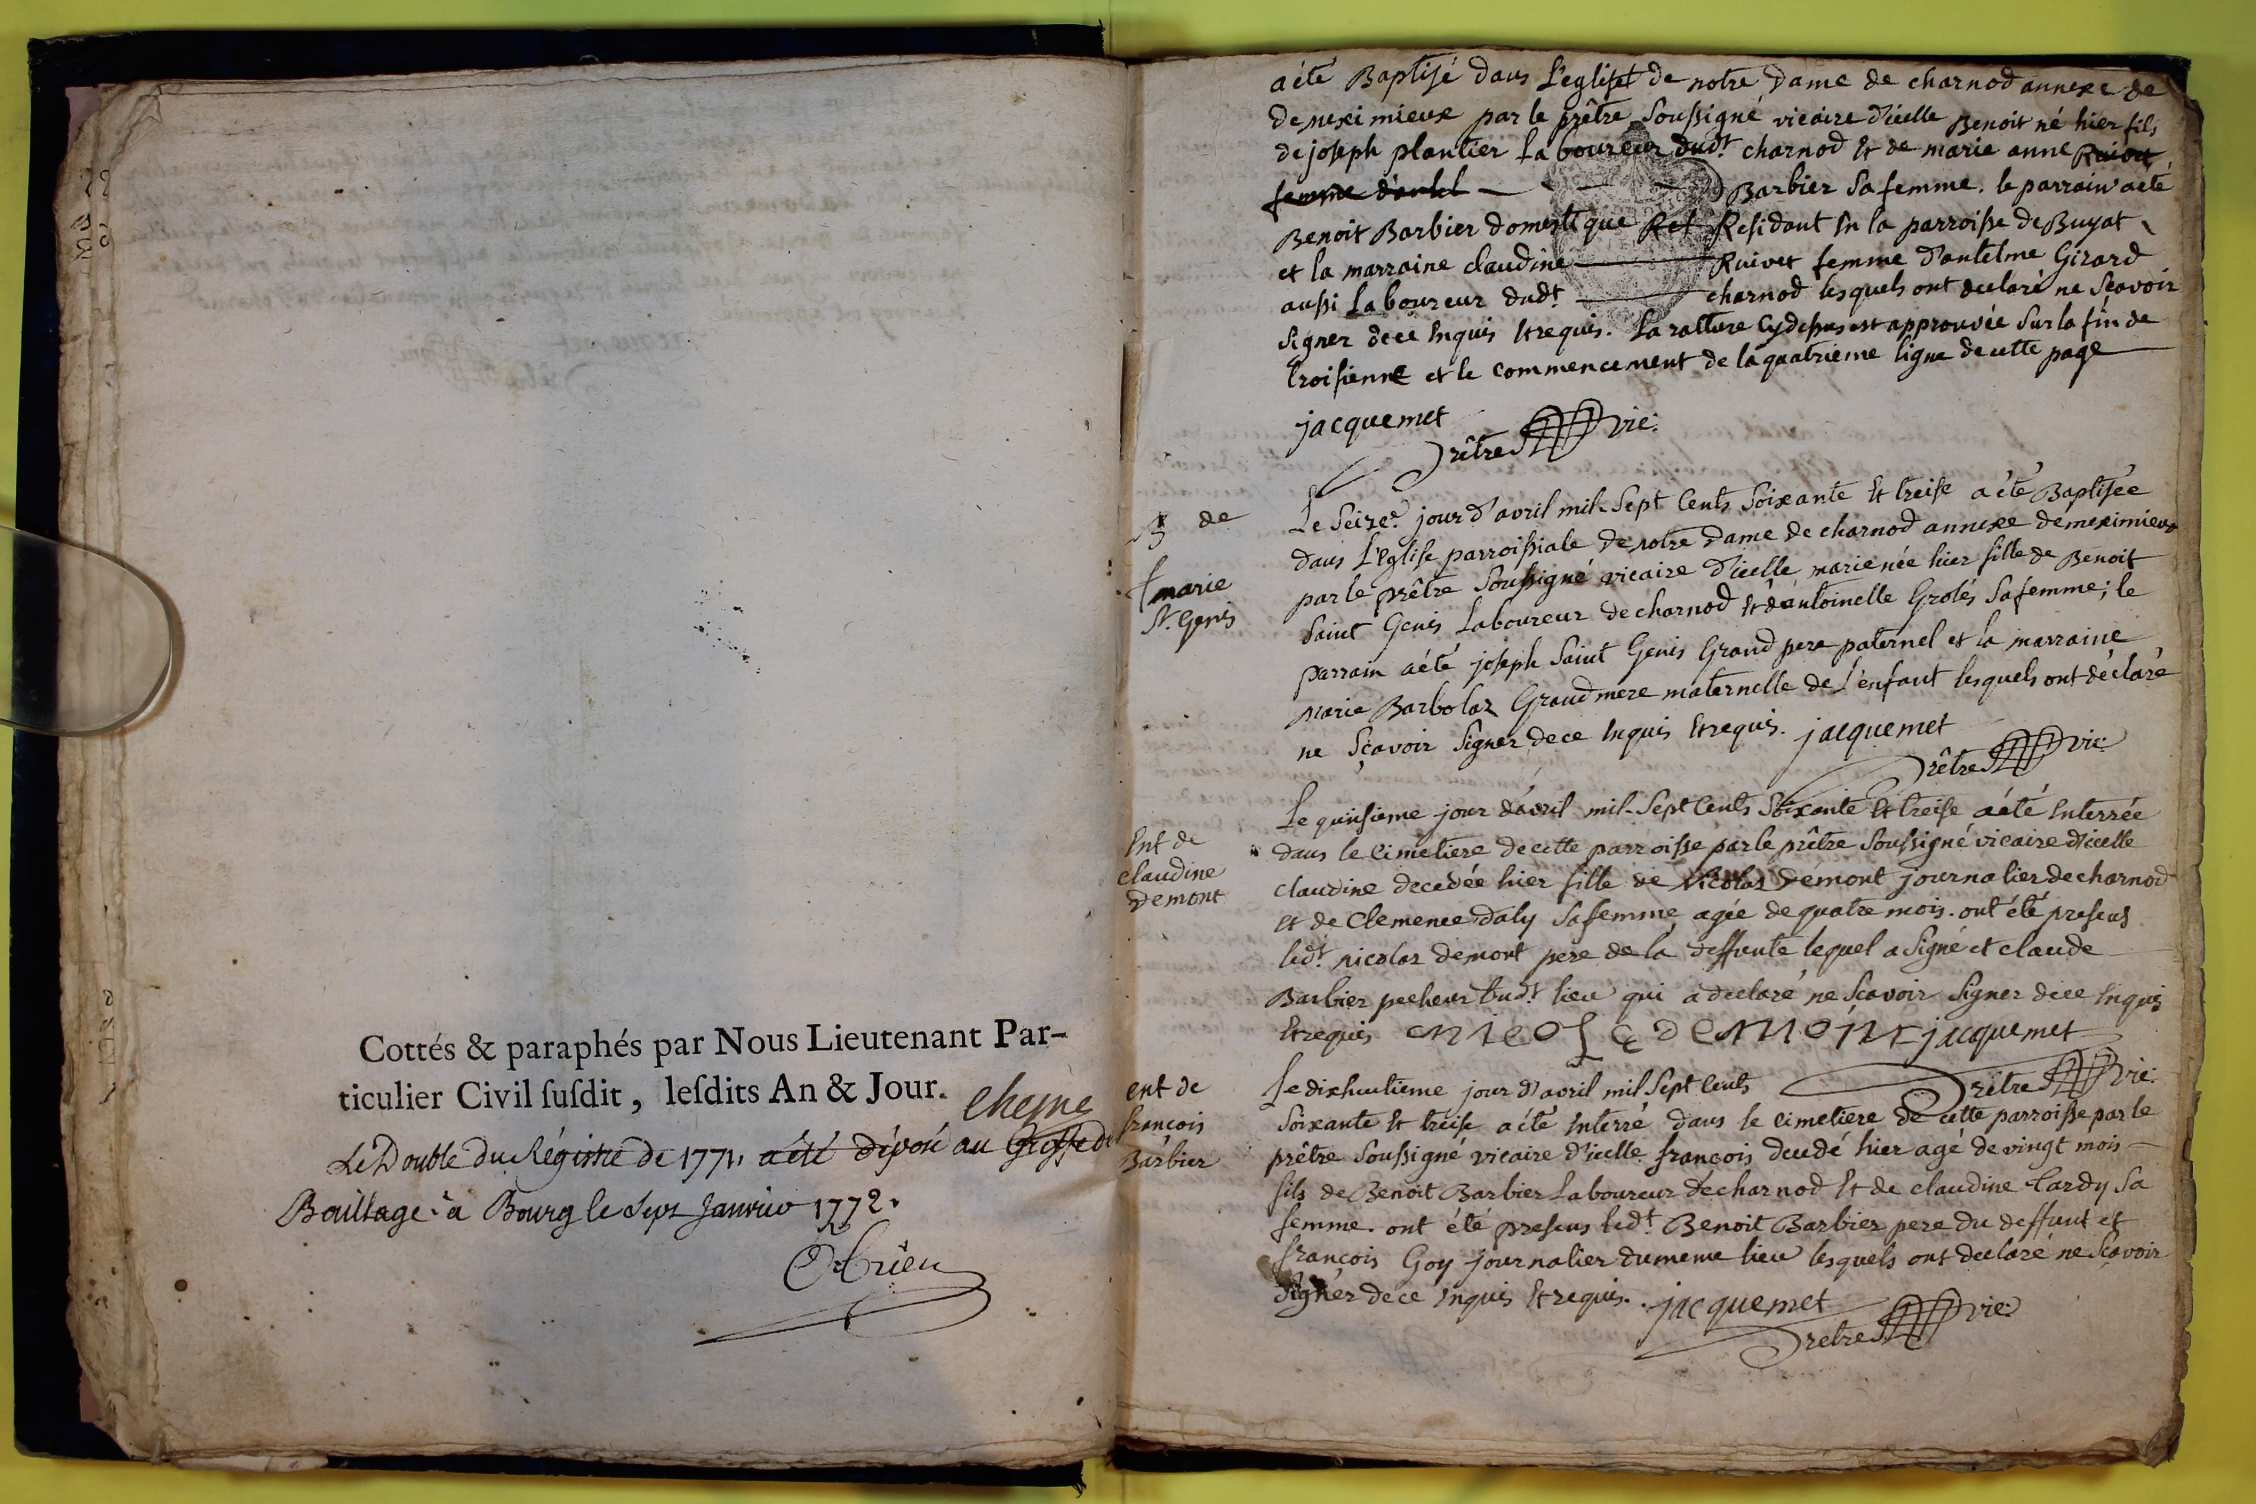 Cottés & paraphés par Nous Lieutenant Par-
ticulier Civil ſuſdit, leſdits An & Jour.
Le Double du Régistre de 1771, a été déposé au Greffe du
Bailliage à Bourg le sept Janvier 1772.
a été Baptisé dans L'eglise de notre Dame de charnod annexe de
de meximieux par le prêtre Soussigné vicaire d'icelle Benoit né hier fils
de joseph plantier Laboureur dudt. charnod Et de marie anne Ruivet
femme d'antel Barbier Sa femme. le parrain a été
Benoit Barbier domestique Ret Residant En la parroisse de Buyat
et la marraine claudine Ruivet femme d'antelme Girard
aussi Laboureur dudt. charnod lesquels ont declaré ne Sçavoir
Signer de ce Enquis Et requis. La rature Cydessus est approuvée Sur la fin de
troisienne et le commencement de la quatrieme ligne de cette page
jacquemet
Prêtre vic:
B de
marie
St. Genis
Le Seize. jour d'avril mil-Sept Cents Soixante Et treise a été Baptisée
dans L'Eglise parroissiale de notre Dame de charnod annexe de meximieux
par le prêtre Soussigné vicaire d'icelle marie née hier fille de Benoit
Saint Genis Laboureur de charnod Et d'antoinette Grolés Sa femme; le
parrain a été joseph Saint Genis Grand pere paternel et la marraine
Marie Barbolaz Grand mere maternelle de L'enfant lesquels ont déclaré
ne Sçavoir Signer de ce Enquis Et requis. jacquemet
Prêtre vic:
Ent de
claudine
Demont
Le quinsieme jour d'avril mil-Sept Cents Soixante Et treise a été Enterrée
dans le Cimetiere de cette parroisse par le prêtre Soussigné vicaire d'icelle
claudine decedée hier fille de Nicolas Demont journalier de charnod
Et de Clemence Daly Sa femme agée de quatre mois. ont été presens
ledt. nicolas demont pere de la deffunte lequel a Signé et claude
Barbier pecheur dudt. lieu qui a declaré ne Scavoir Signer de ce Enquis
Et requis NICOLe DeMONt jacquemet
Prêtre vic:
Ent de
françois
Barbier
Le dixhuitieme jour d'avril mil Sept Cents
Soixante Et treise a été Enterré dans le Cimetiere de cette parroisse par le
prêtre Soussigné vicaire d'icelle françois decedé hier agé de vingt mois
fils de Benoit Barbier Laboureur de charnod Et de claudine Tardy Sa
femme. ont été presens ledt. Benoit Barbier pere du deffunt et
françois Goy journalier du meme lieu lesquels ont declaré ne Sçavoir
Signer de ce Enquis Et requis. jacquemet
Prêtre vic: